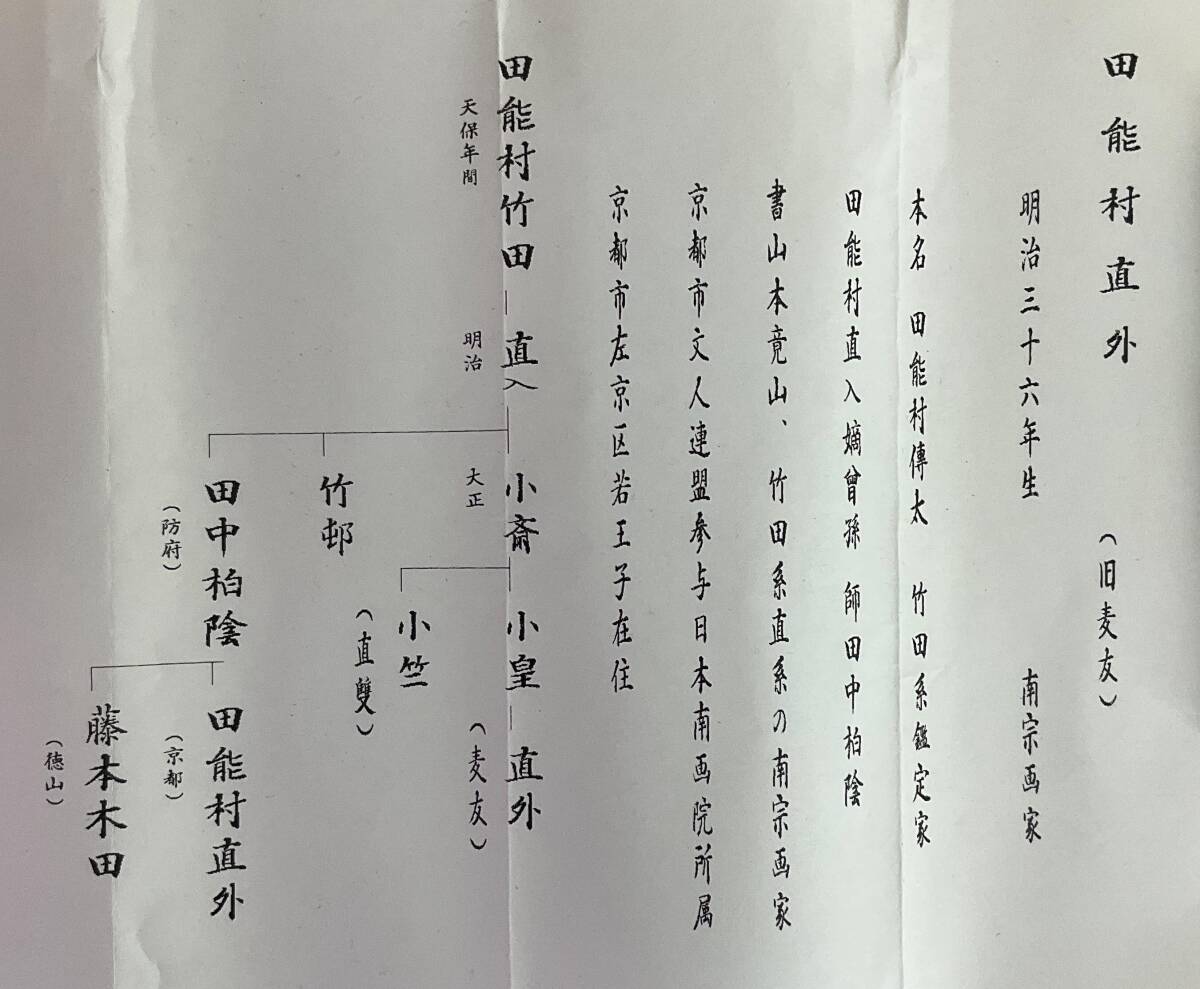 田能村直外 (旧麦友)
明治三十六年生 南宗画家
本名 田能村傳太 竹田系鑑定家
田能村直入嫡曾孫 師田中柏陰
書山本竟山、竹田系直系の南宗画家
京都市文人連盟参与日本南画院所属
京都市左京区若王子在住
田能村竹田
天保年間
直入
明治
小斎
大正
小皇
直外
(麦友)
小竺
(直雙)
竹邨
田中柏陰
(防府)
田能村直外
(京都)
藤本木田
(徳山)